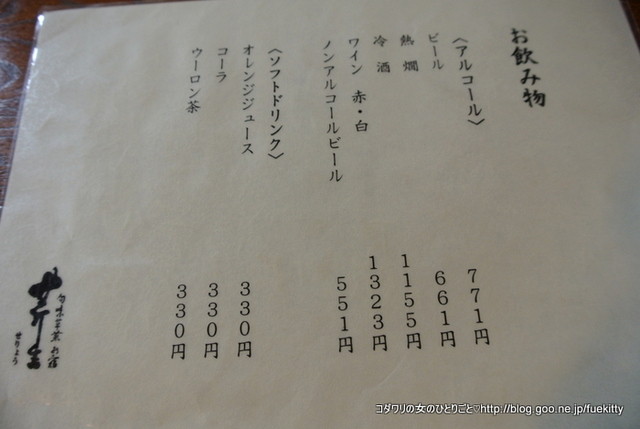 お飲み物
〈アルコール〉
ビール 771円
熱燗 661円
冷酒 1155円
ワイン 赤・白 1323円
ノンアルコールビール 551円
〈ソフトドリンク〉
オレンジジュース 330円
コーラ 330円
ウーロン茶 330円
せりょう
コダワリの女のひとりごと♡http://blog.goo.ne.jp/fuekitty